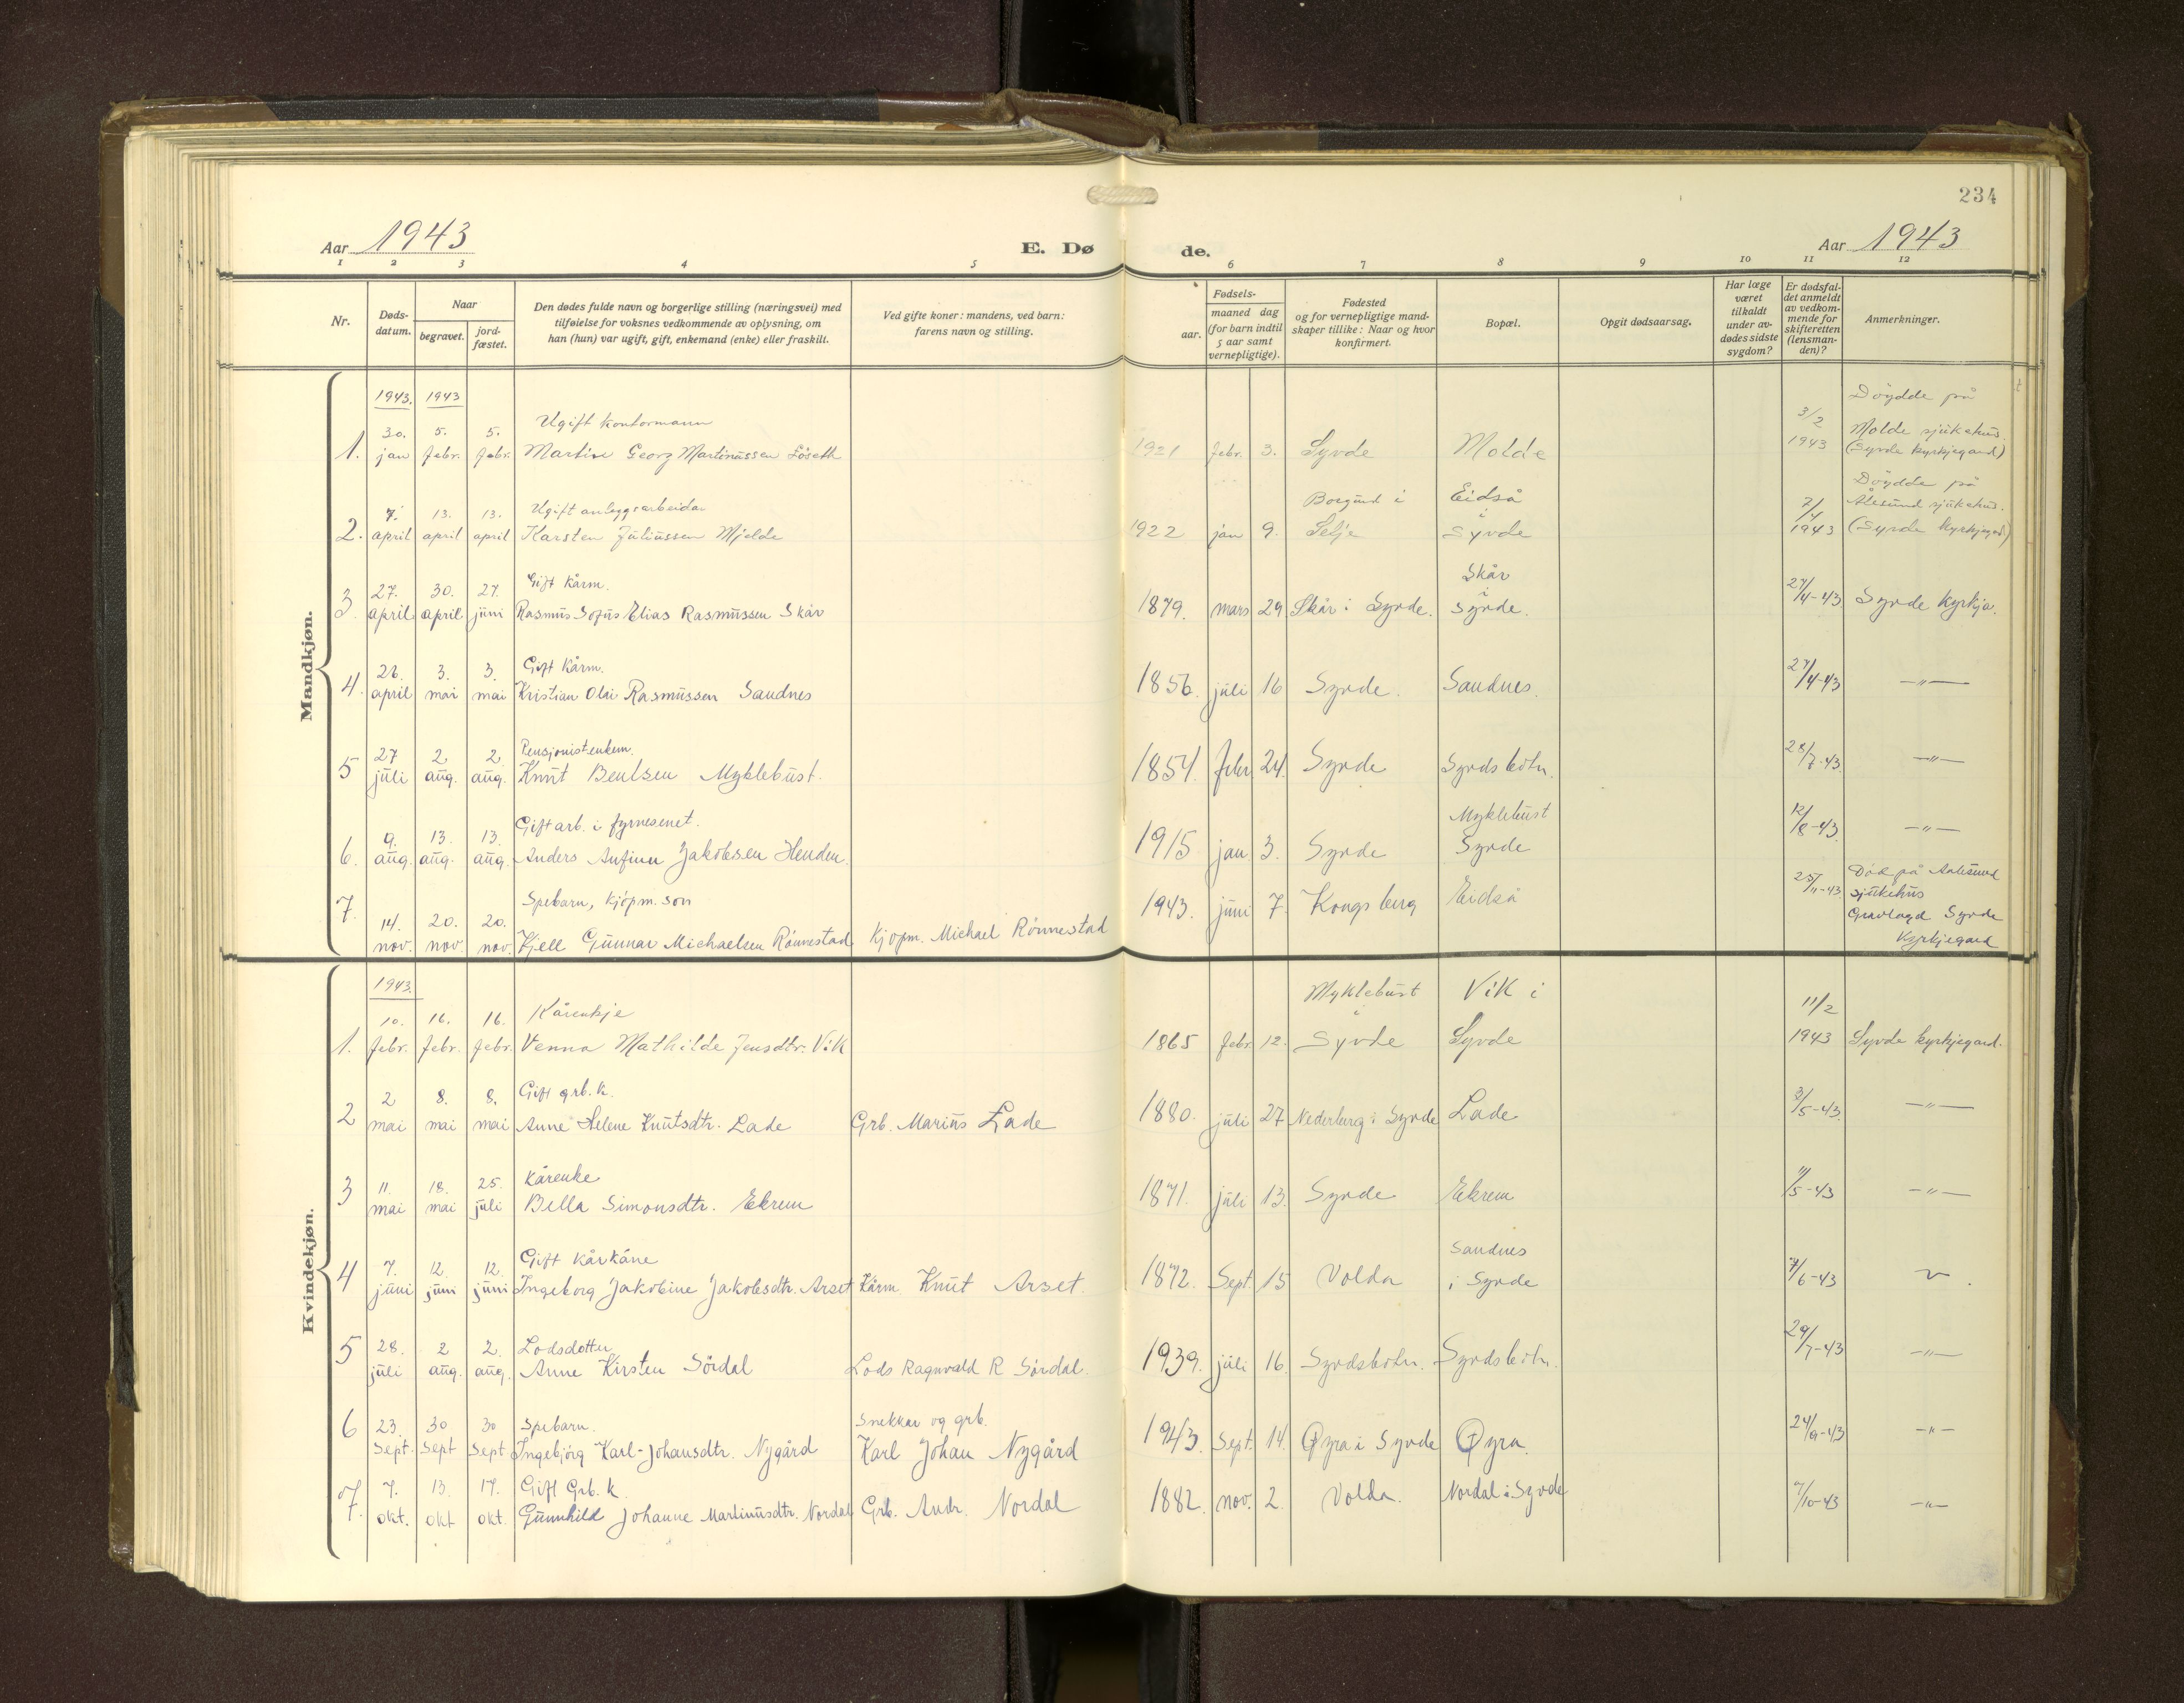 234
Aar 1943
E. Dø
de.
Aar 1943
1 2 3 4 5 6 7 8 9 10 11 12
Nr.
Døds-
datum.
Naar
begravet.
jord-
fæstet.
Den dødes fulde navn og borgerlige stilling (næringsvei) med
tilføielse for voksnes vedkommende av oplysning, om
han (hun) var ugift, gift, enkemand (enke) eller fraskilt.
Ved gifte koner: mandens, ved barn:
farens navn og stilling.
Fødsels-
aar.
maaned dag
(for barn indtil
5 aar samt
vernepligtige).
Fødested
og for vernepligtige mand-
skaper tillike: Naar og hvor
konfirmert.
Bopæl.
Opgit dødsaarsag.
Har læge
været
tilkaldt
under av-
dødes sidste
sygdom?
Er dødsfal-
det anmeldt
av vedkom-
mende for
skifteretten
(lensman-
den)?
Anmerkninger.
Mandkjøn.
1943. 1943
Døydde på
30. 5. 5. Ugift kontormann 3/2 Molde sjukehus.
1. jan febr. febr. Martin Georg Martinussen Løseth 1921 febr. 3. Syvde Molde 1943 (Syvde kyrkjegard)
Døydde på
7. 13. 13. Ugift anleggsarbeidar Borgund i Eidså i 7/4 Ålesund sjukehus.
2. april april april Karsten Juliussen Mjelde 1922 jan 9. Selje Syvde 1943 (Syvde kyrkjegard)
27. 30. 27. Gift kårm. Skår i
3. april april juni Rasmus Sofus Elias Rasmussen Skår 1879. mars 29 Skår i Syvde. Syvde. 27/4-43 Syvde kyrkja.
26. 3. 3. Gift kårm.
4. april mai mai Kristian Olai Rasmussen Sandnes 1856. juli 16 Syvde. Sandnes. 27/4-43 —"—
27 2 2. Pensjonist enkem.
5 juli aug. aug. Knut Bentsen Myklebust. 1854. febr 24. Syvde Syvdsbotn. 28/7-43. —"—
9. 13. 13. Gift arb. i fyrvesenet. Myklebust
6. aug. aug. aug. Anders Anfinn Jakobsen Henden. 1915 jan 3. Syvde Syvde 12/8-43. —"—
14. 20. 20. Spebarn, kjøpm. son Død på Aalesund
7. nov. nov. nov. Kjell Gunnar Michaelsen Rönnestad Kjøpm. Michael Rönnestad 1943. juni 7. Kongsberg Eidså 25/11-43. sjukehus
Gravlagd Syvde
Kyrkjegard
Kvindekjøn.
1943.
10. 16. 16. Kårenkje Myklebust i Vik i 11/2
1. febr. febr. febr. Venna Mathilde Jensdtr. Vik 1865 febr. 12. Syvde Syvde 1943 Syvde kyrkjegard.
2 8. 8. Gift grb. k.
2 mai mai mai Anne Helene Knutsdtr. Lade Grb. Marius Lade 1880. juli 27 Nederberg i Syvde Lade 3/5-43. —"—
11. 18. 25. Kårenke
3 mai mai juli Bella Simonsdtr. Ekrem 1871. juli 13. Syvde Ekrem 11/5-43 —"—
7. 12. 12. Gift kårkåne Sandnes
4 juni juni juni Ingeborg Jakobine Jakobsdtr. Arset Kårm. Knut Arset. 1872. Sept. 15 Volda i Syvde 7/6-43
28. 2 2. Lodsdotter
5 juli aug. aug. Anne Kirsten Sördal Lods Ragnvald R Sördal. 1939. juli 16. Syvdsbotn. Syvdsbotn. 29/7-43 —"—
23. 30 30 Spebarn. Snekkar og grb.
6 Sept. Sept Sept Ingebjörg Karl-Johansdtr. Nygård Karl Johan Nygård 1943. Sept. 14. Øyra i Syvde Øyra. 24/9-43 —"—
7. 13. 17. Gift Grb. k.
7. okt. okt okt. Gunnhild Johanne Martinusdtr. Nordal Grb. Andr. Nordal 1882. nov. 2. Volda. Nordal i Syvde 7/10-43 —"—